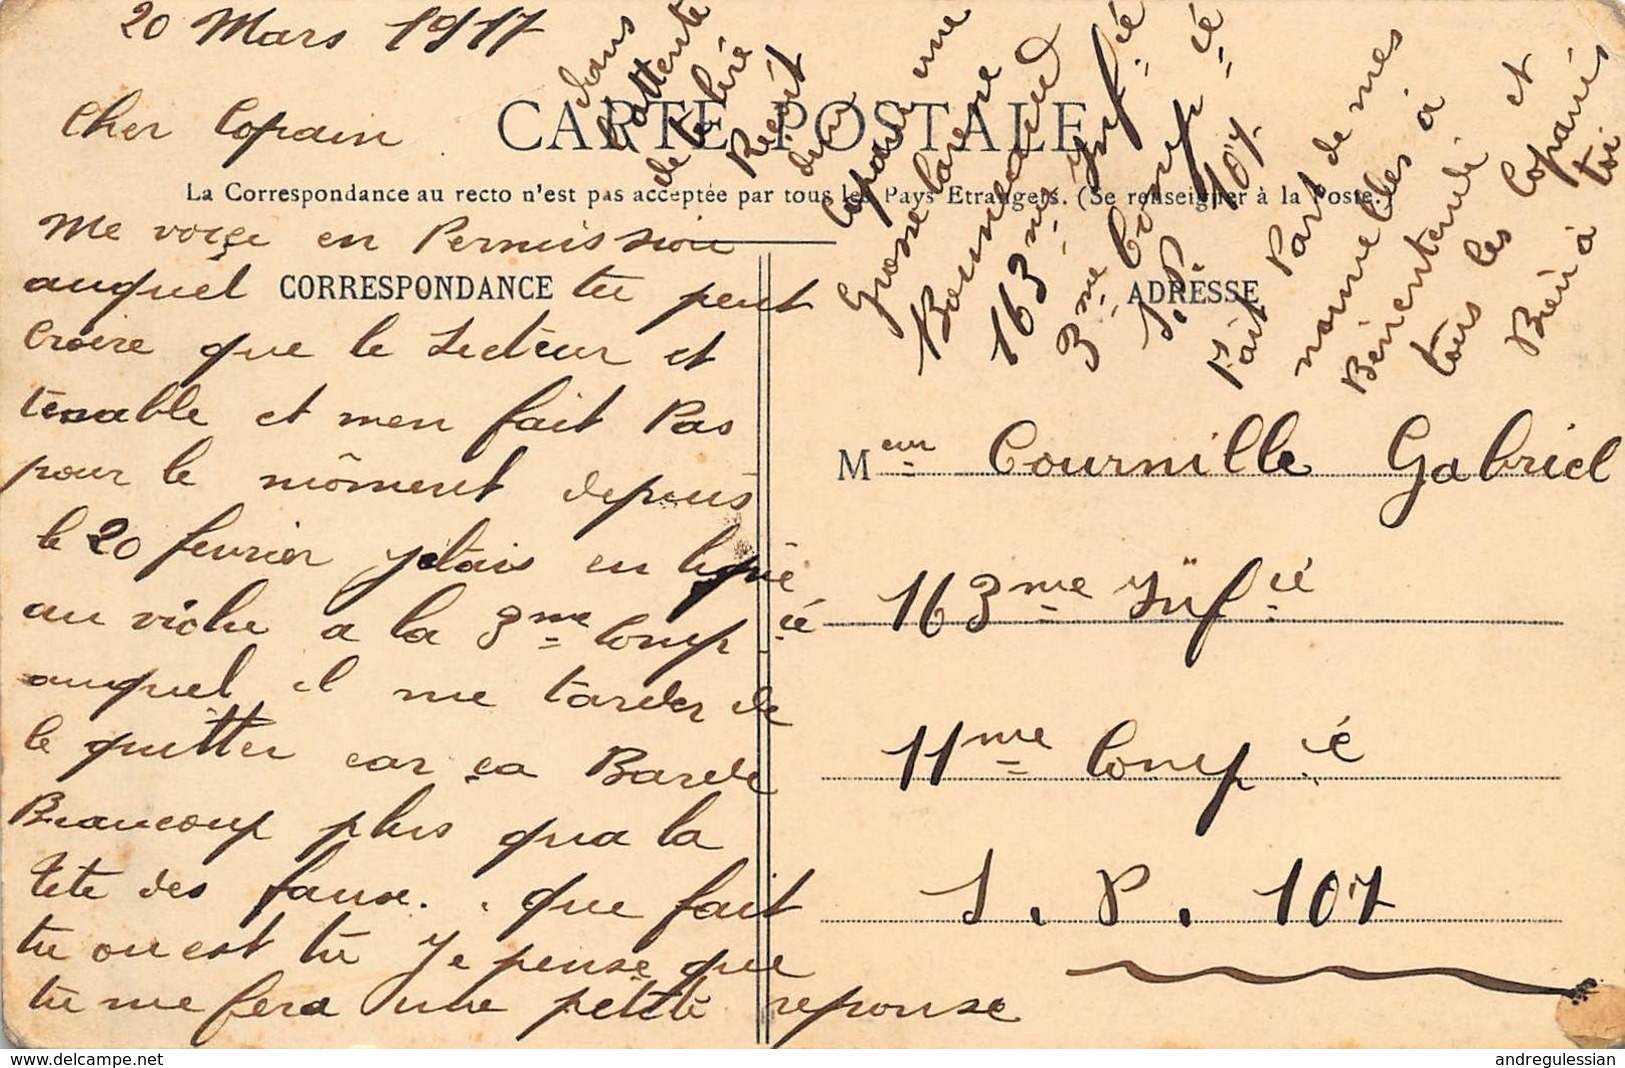 20 Mars 1917
Cher Copain
CARTE POSTALE
La Correspondance au recto n'est pas acceptée par tous les Pays Etrangers. (Se renseigner à la Poste.)
CORRESPONDANCE
ADRESSE
Me voiçi en Permission
auquel tu peut
croire que le Secteur et
tenable et men fait Pas
pour le môment depuis
le 20 fevrier jetais en ligne
au viche a la 3me Comp ie
auquel il me tarder de
le quitter car ça Barde
Beaucoup plus qua la
tete des faux. . que fait
tu ou est tu Je pense que
tu me fera une petite reponse
dans
l'attente
de te lire
Reçoit
d'un
Copain une
Grosse
163 me Inf ie
3me Comp ie
S. P. 107.
Fait Part de mes
nouvelles à
Benentendi et
tous les Copains
Bien à toi
M eur Cournille Gabriel
163 me Inf ie
11 me Comp ie
S. P. 107
andregulessian